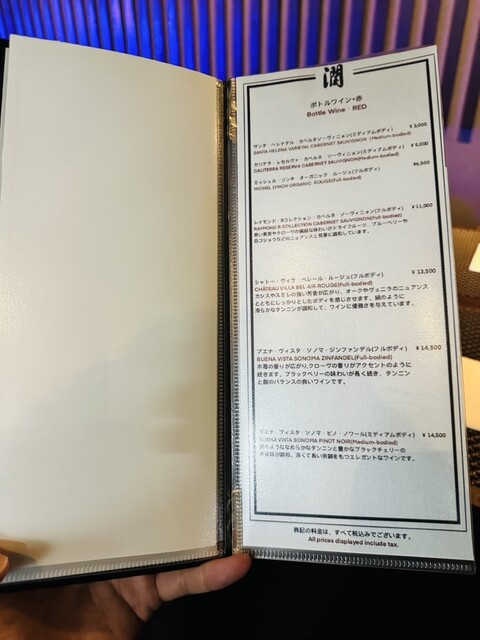 潤
ボトルワイン・赤
Bottle Wine RED
サンタ・ヘレナタル・カベルネソーヴィニョン(ミディアムボディ) ¥3,000
SANTA HELENA VARIETAL CABERNET SAUVIGNON (Medium-bodied)
カリテラ・レセルヴァ・カベルネ・ソーヴィニョン(ミディアムボディ) ¥5,500
CALITERRA RESERVA CABERNET SAUVIGNON(Medium-bodied)
ミッシェル・リンチ・オーガニック ルージュ(フルボディ) ¥6,800
MICHEL LYNCH ORGANIC ROUGE(Full-bodied)
レイモンド・Rコレクション・カベルネ・ソーヴィニョン(フルボディ) ¥11,000
RAYMOND R COLLECTION CABERNET SAUVIGNON(Full-bodied)
赤い果実やクローヴの繊細な味わいがドライフルーツ、ブルーベリーや
白コショウなどのニュアンスと見事に調和しています。
シャトー・ヴィラ・ベレール・ルージュ(フルボディ) ¥13,500
CHÂTEAU VILLA BEL AIR ROUGE(Full-bodied)
カシスやスミレの強い芳香が広がり、オークやヴェニラのニュアンス
とともにしっかりとしたボディを感じさせます。絹のように
滑らかなタンニンが調和して、ワインに優雅さを与えています。
ブエナ・ヴィスタ・ソノマ・ジンファンデル(フルボディ) ¥14,500
BUENA VISTA SONOMA ZINFANDEL(Full-bodied)
木苺の香りが広がり、クローヴの香りがアクセントのように
続きます。ブラックベリーの味わいが長く続き、タンニン
と酸のバランスの良いワインです。
ブエナ・ヴィスタ・ソノマ・ピノ・ノワール(ミディアムボディ) ¥14,500
BUENA VISTA SONOMA PINOT NOIR(Medium-bodied)
絹のようななめらかなタンニンと豊かなブラックチェリーの
果実味が調和、深くて長い余韻をもつエレガントなワインです。
表記の料金は、すべて税込みでございます。
All prices displayed include tax.